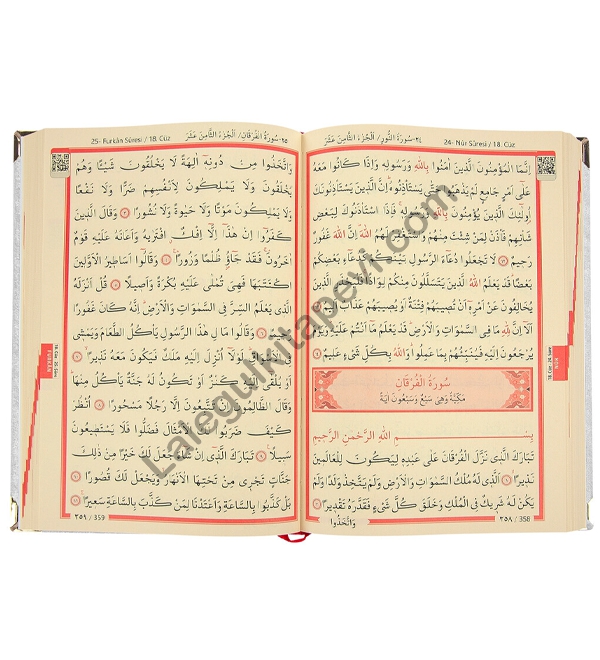 ٢٤- سُورَةُ النُّورِ / اَلْجُزْءُ الثَّامِنَ عَشَرَ
24- Nûr Sûresi / 18. Cüz
اِنَّمَا الْمُؤْمِنُونَ الَّذ۪ينَ اٰمَنُوا بِاللّٰهِ وَرَسُولِه۪ وَاِذَا كَانُوا مَعَهُ
عَلٰٓى اَمْرٍ جَامِعٍ لَمْ يَذْهَبُوا حَتّٰى يَسْتَأْذِنُوهُۜ اِنَّ الَّذ۪ينَ يَسْتَأْذِنُونَكَ
اُو۬لٰٓئِكَ الَّذ۪ينَ يُؤْمِنُونَ بِاللّٰهِ وَرَسُولِه۪ۚ فَاِذَا اسْتَأْذَنُوكَ لِبَعْضِ
شَأْنِهِمْ فَأْذَنْ لِمَنْ شِئْتَ مِنْهُمْ وَاسْتَغْفِرْ لَهُمُ اللّٰهَۜ اِنَّ اللّٰهَ غَفُورٌ
رَح۪يمٌ ﴿٦٢﴾ لَا تَجْعَلُوا دُعَٓاءَ الرَّسُولِ بَيْنَكُمْ كَدُعَٓاءِ بَعْضِكُمْ
بَعْضًاۜ قَدْ يَعْلَمُ اللّٰهُ الَّذ۪ينَ يَتَسَلَّلُونَ مِنْكُمْ لِوَاذًاۚ فَلْيَحْذَرِ الَّذ۪ينَ
يُخَالِفُونَ عَنْ اَمْرِه۪ٓ اَنْ تُص۪يبَهُمْ فِتْنَةٌ اَوْ يُص۪يبَهُمْ عَذَابٌ اَل۪يمٌ ﴿٦٣﴾
اَلَٓا اِنَّ لِلّٰهِ مَا فِي السَّمٰوَاتِ وَالْاَرْضِۜ قَدْ يَعْلَمُ مَٓا اَنْتُمْ عَلَيْهِۜ وَيَوْمَ
يُرْجَعُونَ اِلَيْهِ فَيُنَبِّئُهُمْ بِمَا عَمِلُواۜ وَاللّٰهُ بِكُلِّ شَيْءٍ عَل۪يمٌ ﴿٦٤﴾
سُورَةُ الْفُرْقَانِ
مَكِّيَّةٌ وَهِيَ سَبْعٌ وَسَبْعُونَ اٰيَةً
بِسْمِ اللّٰهِ الرَّحْمٰنِ الرَّح۪يمِ
تَبَارَكَ الَّذ۪ي نَزَّلَ الْفُرْقَانَ عَلٰى عَبْدِه۪ لِيَكُونَ لِلْعَالَم۪ينَ
نَذ۪يرًاۙ ﴿١﴾ اَلَّذ۪ي لَهُ مُلْكُ السَّمٰوَاتِ وَالْاَرْضِ وَلَمْ يَتَّخِذْ وَلَدًا وَلَمْ
يَكُنْ لَهُ شَر۪يكٌ فِي الْمُلْكِ وَخَلَقَ كُلَّ شَيْءٍ فَقَدَّرَهُ تَقْد۪يرًا ﴿٢﴾
وَاتَّخَذُوا
٣٥٨ / 358
٢٥- سُورَةُ الْفُرْقَانِ / اَلْجُزْءُ الثَّامِنَ عَشَرَ
25- Furkân Sûresi / 18. Cüz
وَاتَّخَذُوا مِنْ دُونِه۪ٓ اٰلِهَةً لَا يَخْلُقُونَ شَيْـًٔا وَهُمْ
يُخْلَقُونَ وَلَا يَمْلِكُونَ لِاَنْفُسِهِمْ ضَرًّا وَلَا نَفْعًا
وَلَا يَمْلِكُونَ مَوْتًا وَلَا حَيٰوةً وَلَا نُشُورًا ﴿٣﴾ وَقَالَ الَّذ۪ينَ
كَفَرُٓوا اِنْ هٰذَٓا اِلَّٓا اِفْكٌۨ افْتَرٰيهُ وَاَعَانَهُ عَلَيْهِ قَوْمٌ
اٰخَرُونَۚ فَقَدْ جَٓاؤُ۫ ظُلْمًا وَزُورًاۚ ﴿٤﴾ وَقَالُٓوا اَسَاط۪يرُ الْاَوَّل۪ينَ
اكْتَتَبَهَا فَهِيَ تُمْلٰى عَلَيْهِ بُكْرَةً وَاَص۪يلًا ﴿٥﴾ قُلْ اَنْزَلَهُ
الَّذ۪ي يَعْلَمُ السِّرَّ فِي السَّمٰوَاتِ وَالْاَرْضِۜ اِنَّهُ كَانَ غَفُورًا
رَح۪يمًا ﴿٦﴾ وَقَالُوا مَالِ هٰذَا الرَّسُولِ يَأْكُلُ الطَّعَامَ وَيَمْش۪ي
فِي الْاَسْوَاقِۜ لَوْلَٓا اُنْزِلَ اِلَيْهِ مَلَكٌ فَيَكُونَ مَعَهُ نَذ۪يرًاۙ ﴿٧﴾
اَوْ يُلْقٰٓى اِلَيْهِ كَنْزٌ اَوْ تَكُونُ لَهُ جَنَّةٌ يَأْكُلُ مِنْهَاۜ
وَقَالَ الظَّالِمُونَ اِنْ تَتَّبِعُونَ اِلَّا رَجُلًا مَسْحُورًا ﴿٨﴾ اُنْظُرْ
كَيْفَ ضَرَبُوا لَكَ الْاَمْثَالَ فَضَلُّوا فَلَا يَسْتَط۪يعُونَ
سَب۪يلًا۟ ﴿٩﴾ تَبَارَكَ الَّذ۪ٓي اِنْ شَٓاءَ جَعَلَ لَكَ خَيْرًا مِنْ ذٰلِكَ
جَنَّاتٍ تَجْر۪ي مِنْ تَحْتِهَا الْاَنْهَارُۙ وَيَجْعَلْ لَكَ قُصُورًا ﴿١٠﴾
بَلْ كَذَّبُوا بِالسَّاعَةِ وَاَعْتَدْنَا لِمَنْ كَذَّبَ بِالسَّاعَةِ سَع۪يرًاۚ ﴿١١﴾
٣٥٩ / 359
FURKÂN
NÛR
Lalegulkitapevi.com